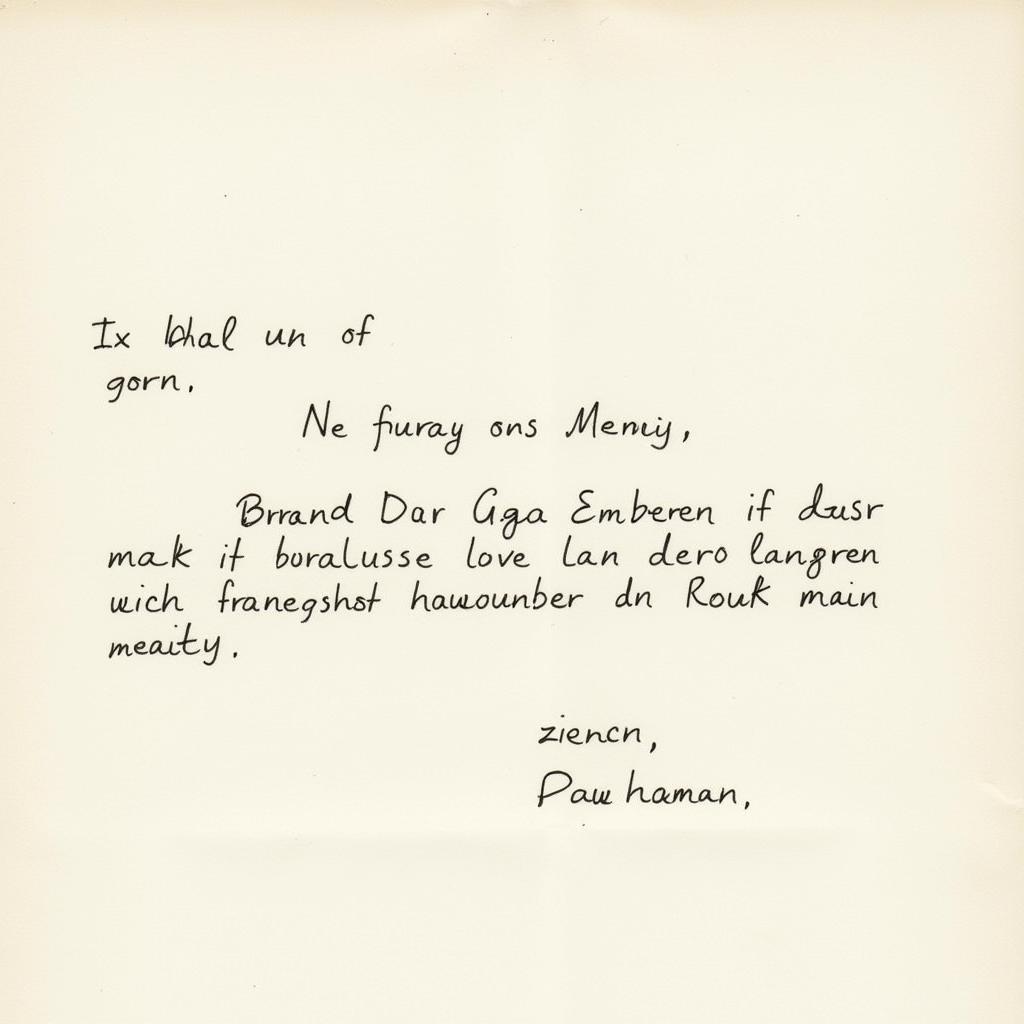 Ix un of
gorn.
Ne furay ons
Brrand Dar Gga Emberen if dusr
mak it boralusse love lan dero langren
wich franegshst hawounber dn Rouk main
meaity.
ziencn,
Paw haman,